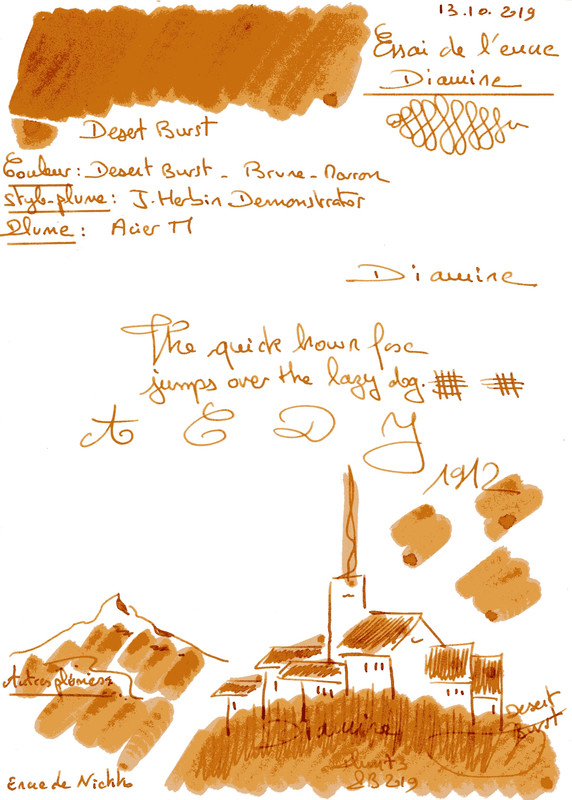 13.10.2019
Essai de l'encre
Diamine
Desert Burst
Couleur : Desert Burst - Brune-Marron
Stylo-plume : J. Herbin Demonstrator
Plume : Acier M
Diamine
The quick brown fox
jumps over the lazy dog.
A E D Y
1912
Autres plumiers
Diamine
Desert
Burst
73
SB 2019
Encre de Nickko